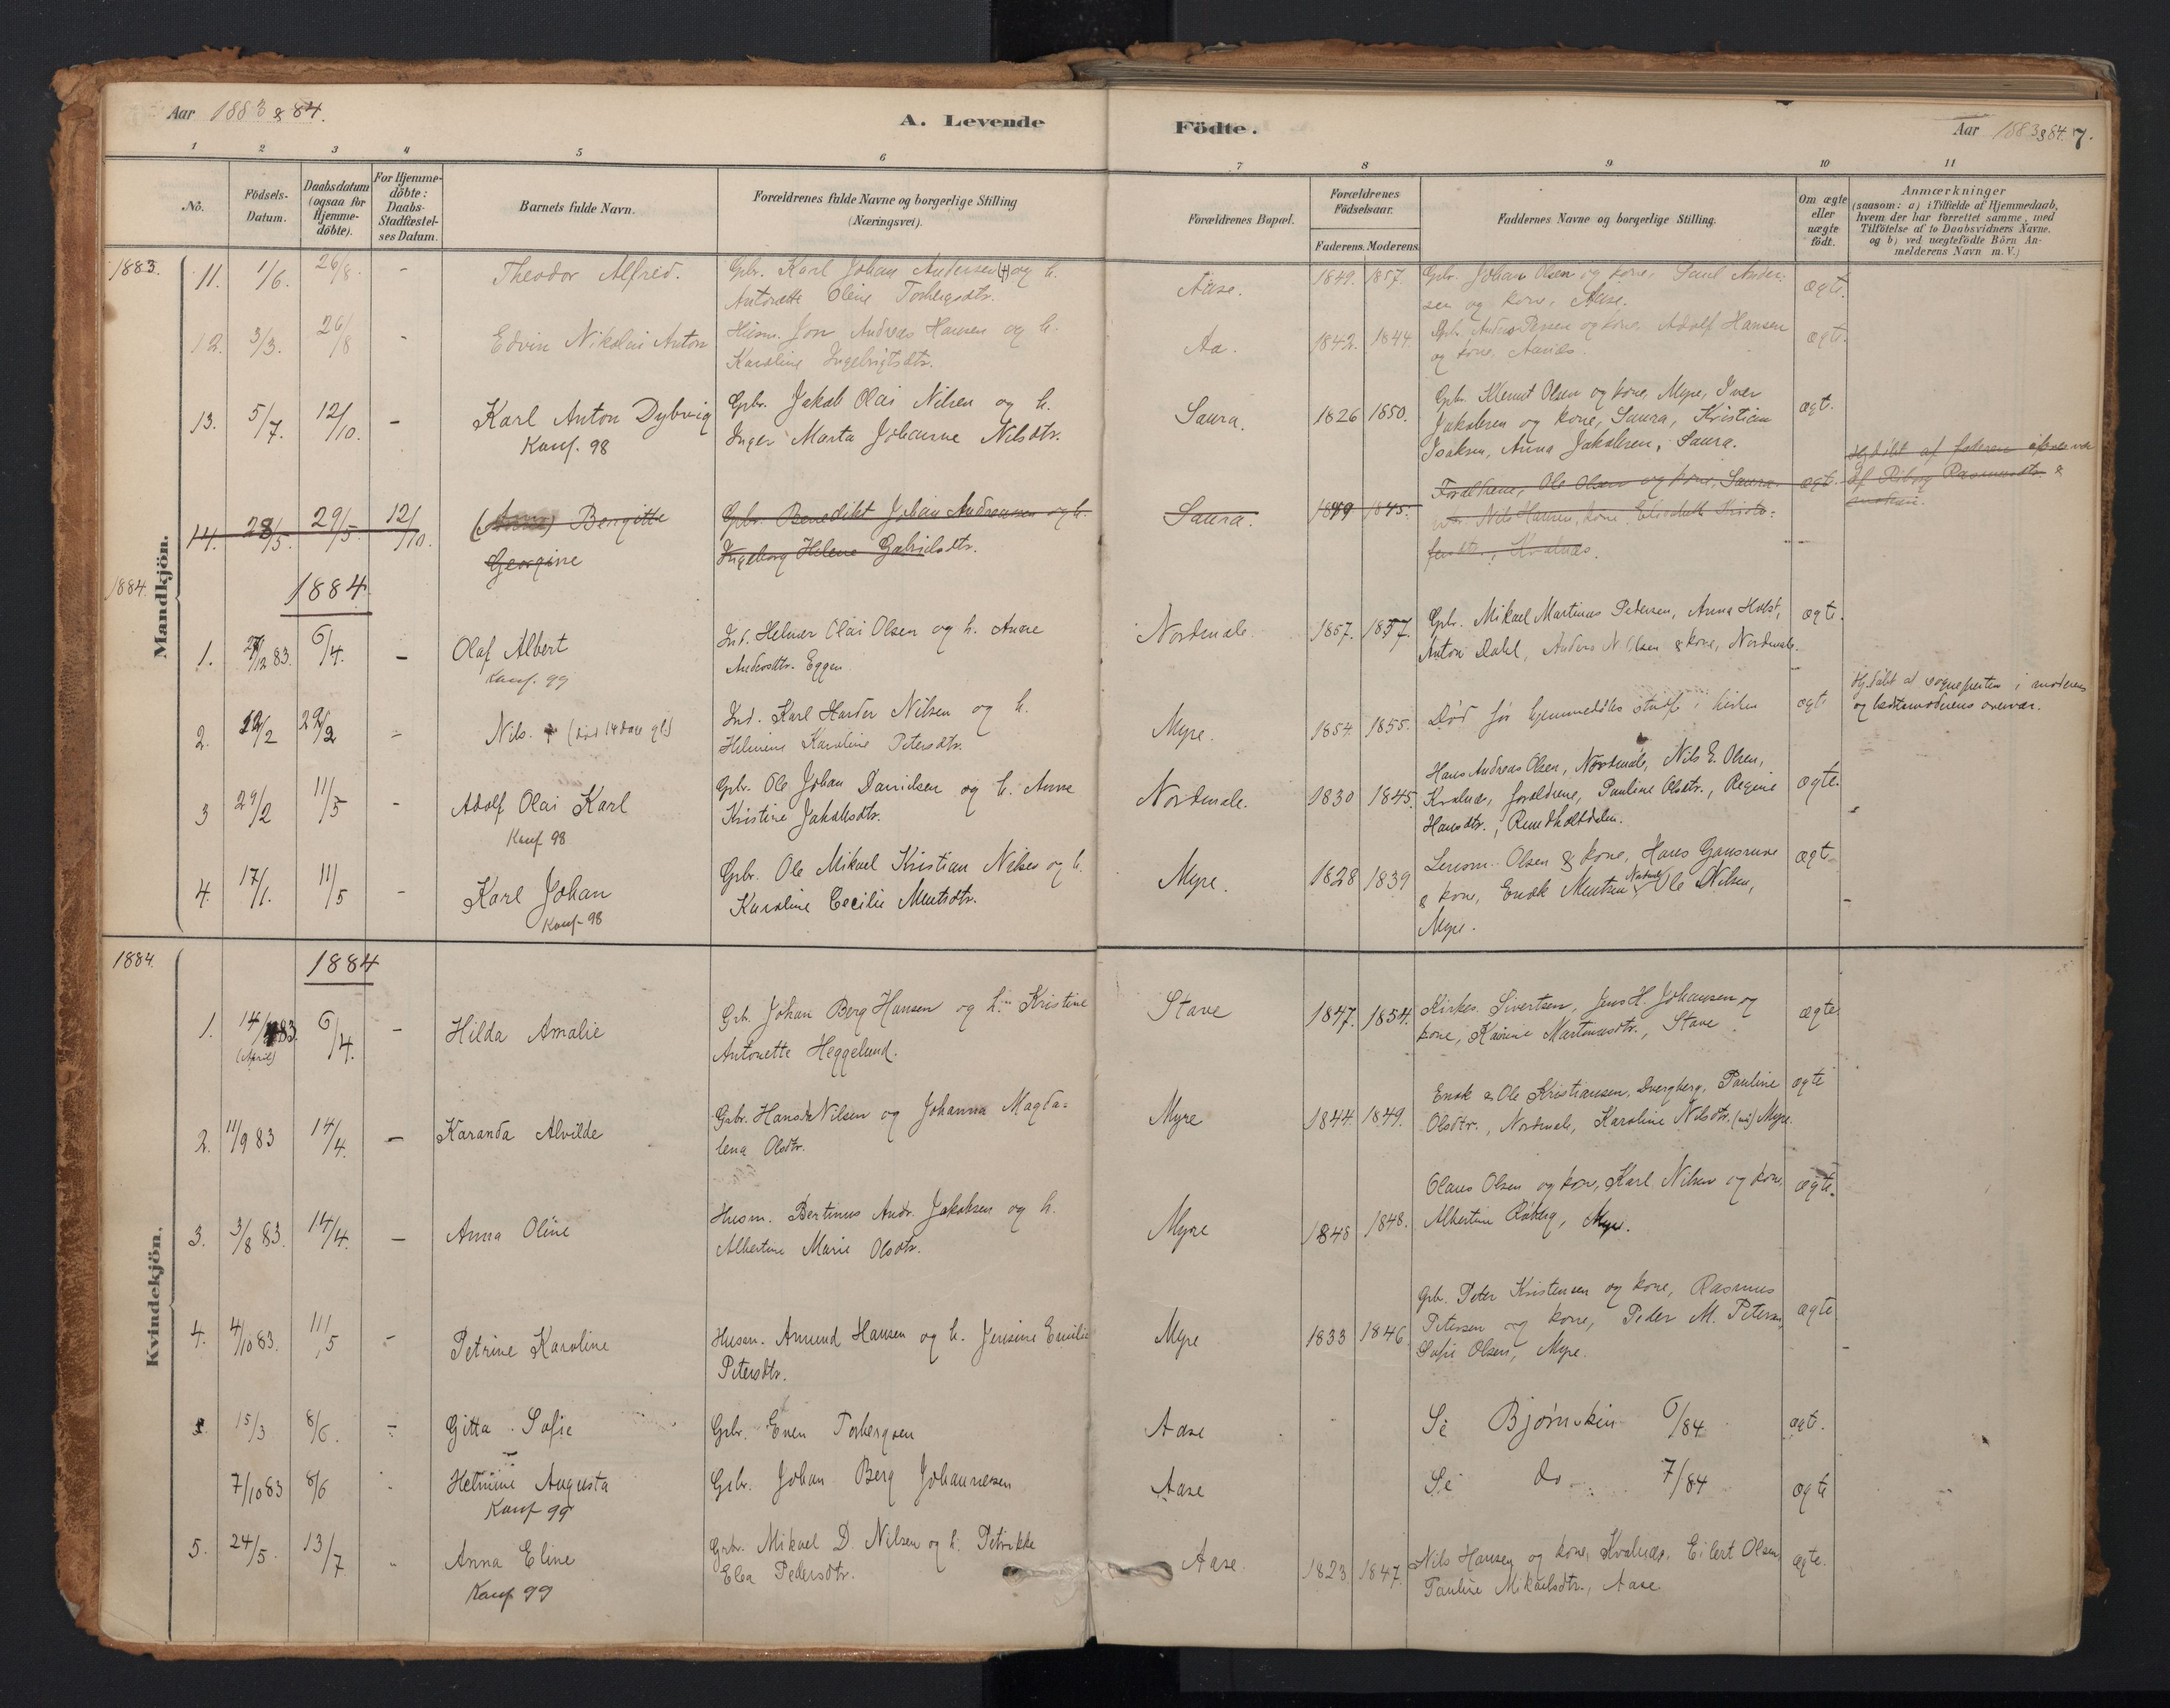 Aar 1883 & 84.
A. Levende
Födte.
Aar 1883 & 84. 7.
1 2 3 4 5 6 7 8 9 10 11
No.
Födsels-
Datum.
Daabsdatum
(ogsaa for
Hjemme-
döbte).
For Hjemme-
döbte:
Daabs-
Stadfæstel-
ses Datum.
Barnets fulde Navn.
Forældrenes fulde Navne og borgerlige Stilling
(Næringsvei).
Forældrenes Bopæl.
Forældrenes
Födselsaar.
Faderens. Moderens.
Faddernes Navne og borgerlige Stilling.
Om ægte
eller
uægte
födt.
Anmærkninger
(saasom: a) i Tilfælde af Hjemmedaab,
hvem der har forrettet samme, med
Tilföielse af to Daabsvidners Navne.
og b) ved uægtefödte Börn An-
melderens Navn m. V.)
Mandkjön.
1883.
11. 1/6. 26/8. - Theodor Alfred. Gbr. Karl Johan Andersen (+) og h. Aase. 1849. 1857. Gbr. Johan Olsen og kone, Paul Ander-
Antonette Oline Torbergsdtr. sen og kone, Aase. ægte.
12. 3/3. 26/8 - Edvin Nikolai Anton Husm. Jon Andreas Hansen og h. Aa. 1842. 1844. Gbr. Anders Persen og kone, Adolf Hansen ægte.
Karoline Ingebrigtsdtr. og kone, Aanæs.
13. 5/7. 12/10. - Karl Anton Dybvig Gbr. Jakob Olai Nilsen og h. Saura. 1826 1850. Gbr. Klemet Olsen og kone, Myre, Iver ægt.
Konf. 98 Inger Marta Johanne Nilsdtr. Jakobsen og kone, Saura, Kristian
Isaksen, Anna Jakobsen, Saura.
14. 28/5. 29/5. 12/10. (Anna) Bergitte Gbr. Benedikt Johan Andreassen og h. Saura. 1849 1845. Forældrene, Ole Olsen og kone, Saura ægte.
Georgine Ingeborg Helene Gabrielsdtr. Nils Hansen, kone, Elisabeth Kristo-
fersdtr., Kvalnæs.
Hj.döbt af faderen
af Rasmusdtr. &
1884.
1884
1. 27/12 83. 6/4. - Olaf Albert Ind. Helmer Olai Olsen og h. Anne Nordmele. 1857. 1857. Gbr. Mikael Martinus Pedersen, Anna Holst, ægte.
Konf. 99 Andersdtr. Eggen Anton Dahl, Anders Nilsen & kone, Nordmele.
2. 12/2 22/2 - Nils. + (död 14 dage gl.) Ind. Karl Harder Nilsen og h. Myre. 1854. 1855. Död för hjemmedöbs stadf. i kirken ægte
Helmine Karoline Petersdtr.
Hj.döbt af sognepresten i moderens
og bedstemoderens overvær.
3 29/2 11/5 - Adolf Olai Karl Gbr. Ole Johan Danielsen og h. Anne Nordmele. 1830 1845. Hans Andreas Olsen, Nordmele, Nils E. Olsen,
Konf 98 Kristine Jakobsdtr. Kvalnæs, forældrene, Pauline Olsdtr., Regine ægte.
Hansdtr., Rundholtdalen.
4. 17/1. 11/5 - Karl Johan Gbr. Ole Mikael Kristian Nilsen og h. Myre. 1828 1839 Lensm. Olsen & kone, Hans Gansmoe ægte.
Konf 98 Karoline Cecilie Mentsdtr. & kone, Enok Mentsen, Ole Nilsen,
Myre.
Kvindekjön.
1884.
1884
1. 14/4 83. 6/4. - Hilda Amalie Grb. Johan Berg Hansen og h. Kristine Stave 1847. 1854. Kirkes. Sivertsen, Jens H. Johansen og ægte.
(April) Antonette Heggelund. kone, Karine Martinusdtr., Stave
2. 11/9 83 14/4. - Karanda Alvilde Gbr. Hans Nilsen og Johanna Magda- Myre 1844. 1849. Enok & Ole Kristiansen, Dvergberg, Pauline ægte
lena Olsdtr. Olsdtr., Nordmele, Karoline Nilsdtr. Myre.
3. 3/8 83. 14/4. - Anna Oline Husm. Bertinus Andr. Jakobsen og h. Myre 1848 1848. Olaus Olsen og kone, Karl Nilsen og kone, ægte.
Albertine Marie Olsdtr. Albertine Röberg, Myre.
4. 4/10 83. 11/5 - Petrine Karoline Husm. Amund Hansen og h. Jensine Emilie Myre 1833 1846. Gbr. Peter Kristensen og kone, Rasmus ægte
Petersdtr. Petersen og kone, Peder M. Petersen,
Sofie Olsen, Myre.
15/3 8/6. - Gitta Sofie Gbr. Even Torbergsen Aase Se Bjørnskin 6/84 ægt.
7/10 83 8/6 Helmine Augusta Gbr. Johan Berg Johannesen Aase Se do. 7/84 ægte
Konf 99
5. 24/5. 13/7 Anna Eline Gbr. Mikael D. Nilsen og h. Petrikke Aase. 1823. 1847. Nils Hansen og kone, Kvalnæs, Eilert Olsen, ægte.
Konf 99 Elea Pedersdtr. Pauline Mikaelsdtr., Aase